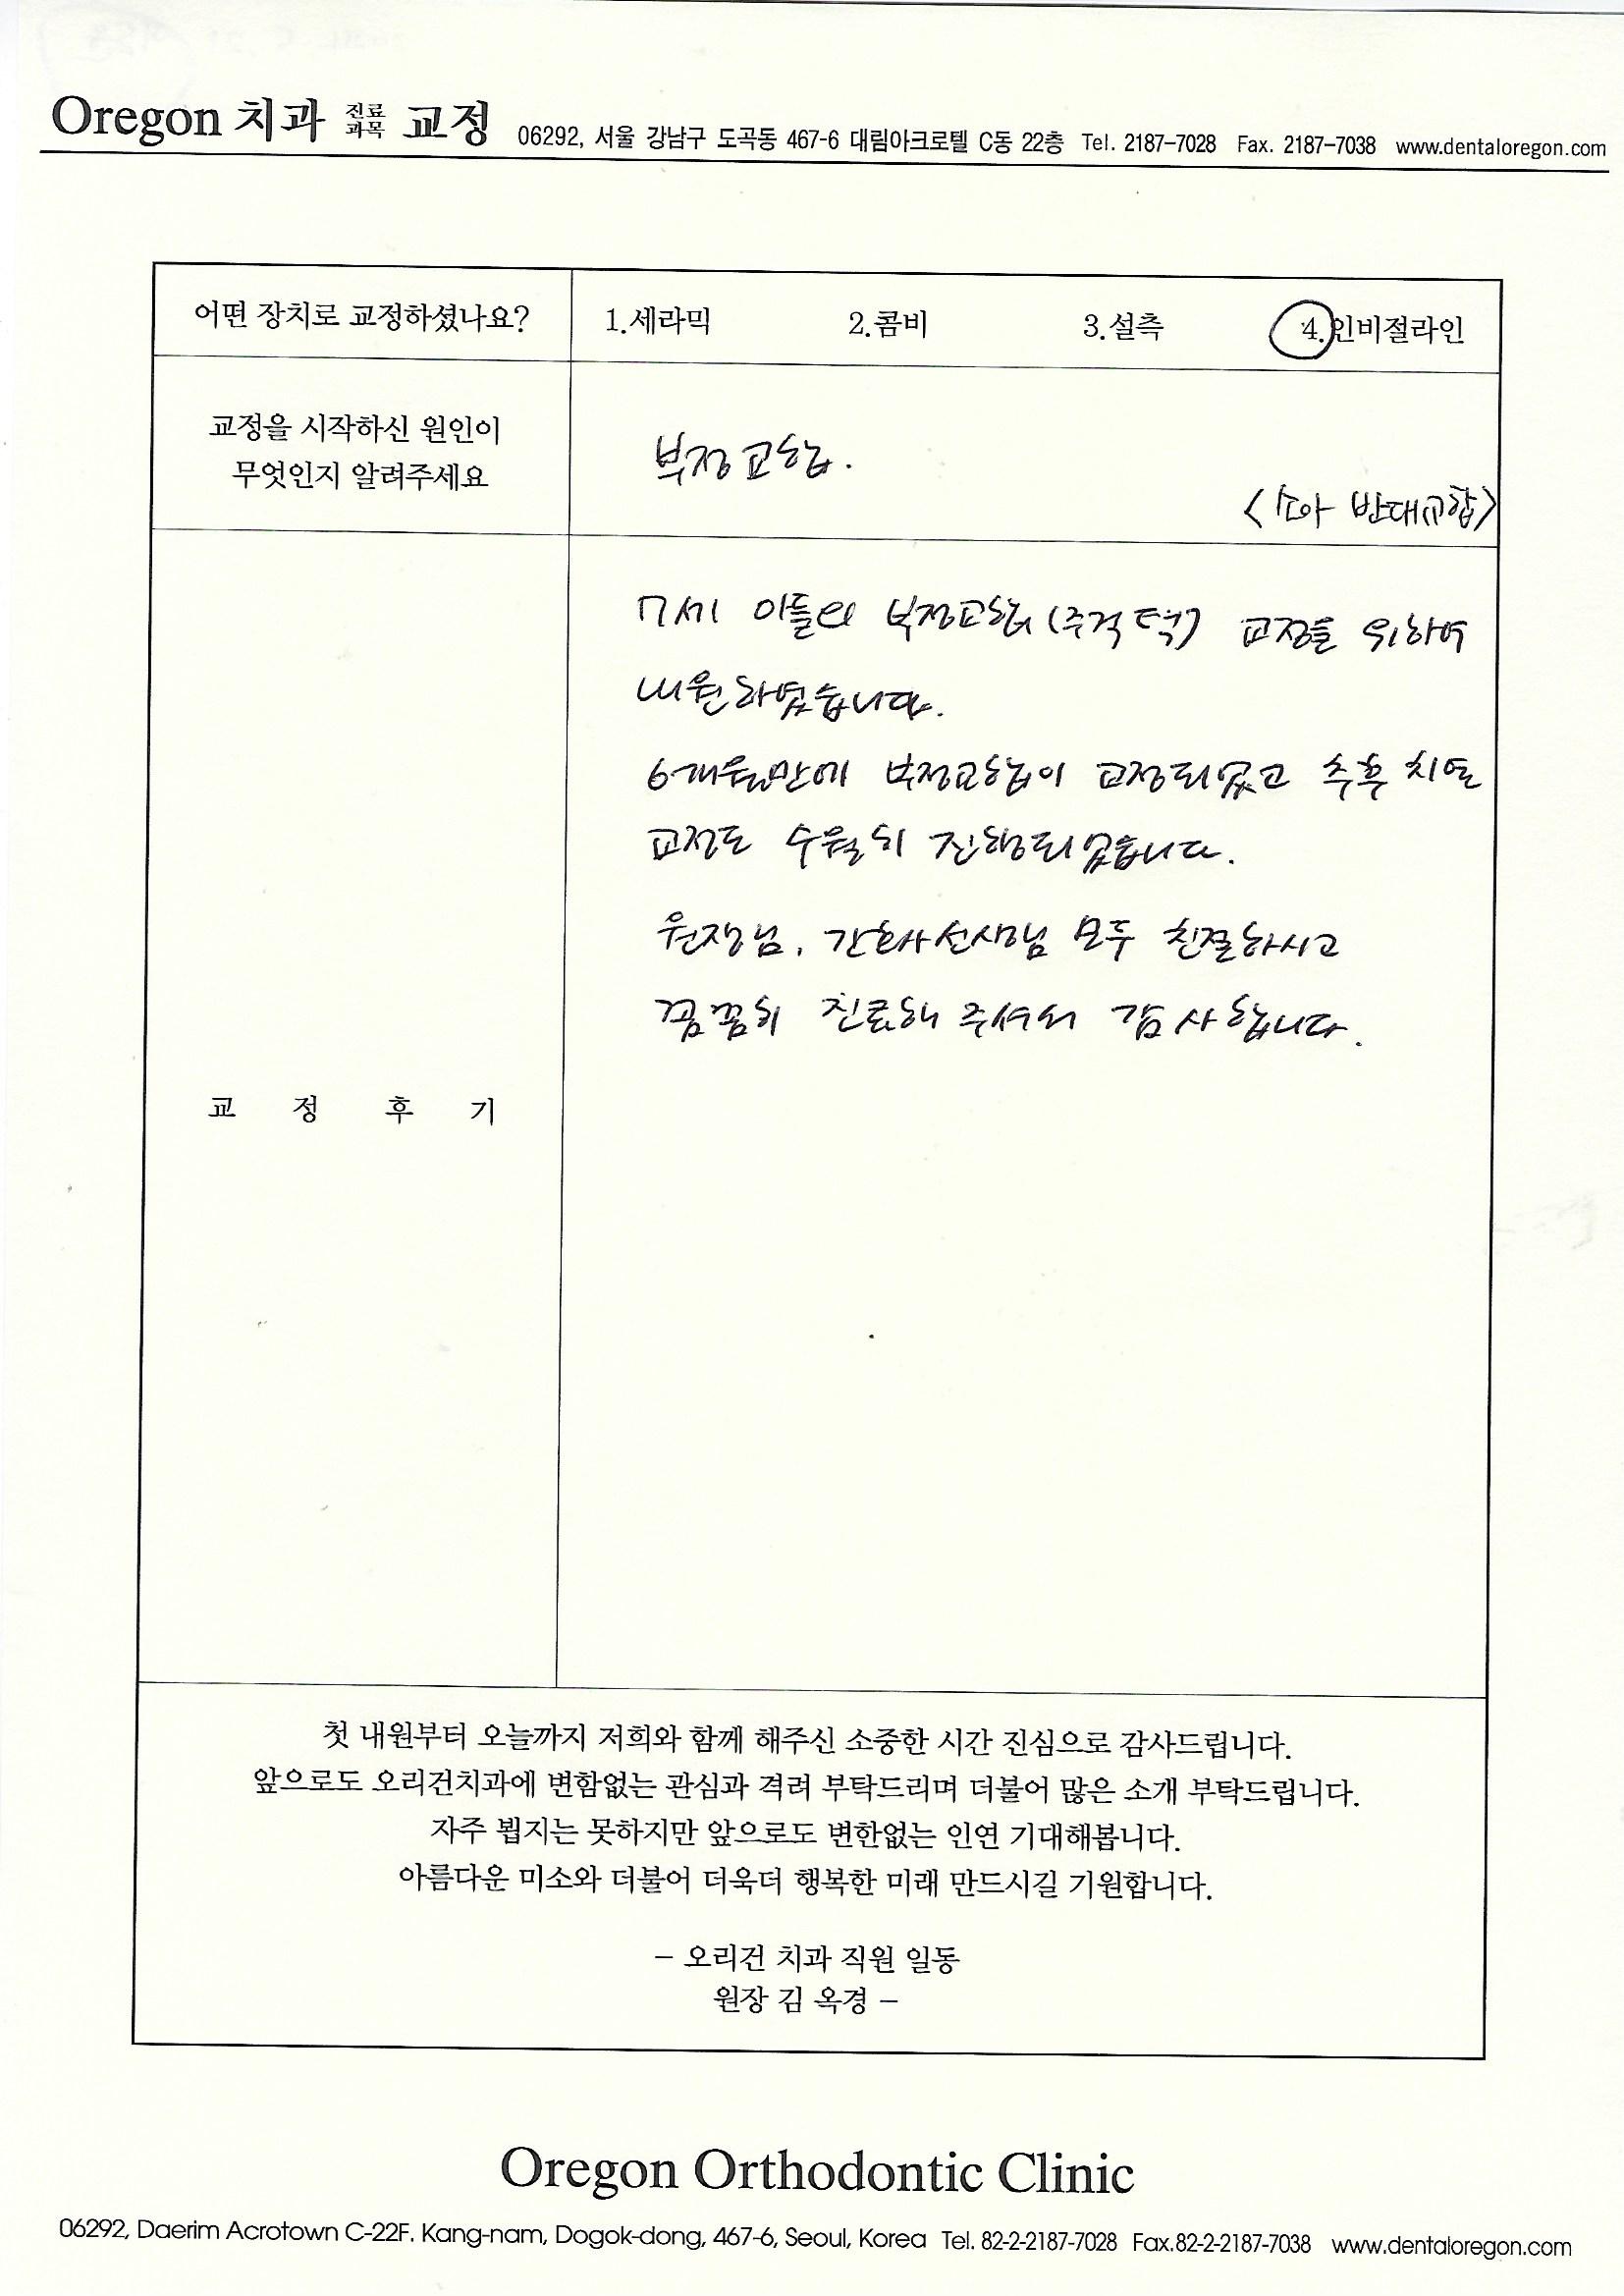 Oregon 치과 진료과목 교정 06292, 서울 강남구 도곡동 467-6 대림아크로텔 C동 22층 Tel. 2187-7028 Fax. 2187-7038 www.dentaloregon.com
어떤 장치로 교정하셨나요? 1.세라믹 2.콤비 3.설측 4.인비절라인
교정을 시작하신 원인이
무엇인지 알려주세요
부정교합.
<소아 반대교합>
교 정 후 기
7세 아들의 부정교합(주걱턱) 교정을 위하여
내원하였습니다.
6개월만에 부정교합이 교정되었고 추후 치열
교정도 수월히 진행되었습니다.
원장님, 간호사선생님 모두 친절하시고
꼼꼼히 진료해 주셔서 감사합니다.
첫 내원부터 오늘까지 저희와 함께 해주신 소중한 시간 진심으로 감사드립니다.
앞으로도 오리건치과에 변함없는 관심과 격려 부탁드리며 더불어 많은 소개 부탁드립니다.
자주 뵙지는 못하지만 앞으로도 변한없는 인연 기대해봅니다.
아름다운 미소와 더불어 더욱더 행복한 미래 만드시길 기원합니다.
– 오리건 치과 직원 일동
원장 김 옥경 –
Oregon Orthodontic Clinic
06292, Daerim Acrotown C-22F. Kang-nam, Dogok-dong, 467-6, Seoul, Korea Tel. 82-2-2187-7028 Fax.82-2-2187-7038 www.dentaloregon.com